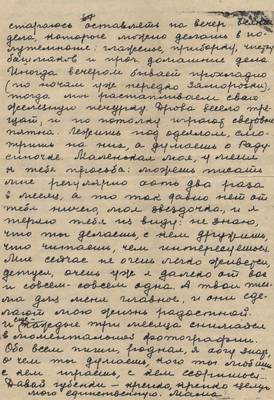 стараюсь оставлять на вечер всякие
дела, которые можно делать в по-
лутемноте: глаженье, приборку, чистку
башмаков и проч. домашние дела.
Иногда вечером бывает прохладно
(по ночам уже нередко заморозки),
тогда мы растапливаем свою
железную печурку. Дрова весело тре-
щат, и по потолку играют световые
пятна. Лежишь под одеялом, смо-
тришь на них, а думаешь о Раду-
синочке. Маленькая моя, у меня
к тебе просьба: можешь писать
мне регулярно хоть два раза
в месяц, а то так давно нет от
тебя писем, моя звездочка, и я
теряю тебя из виду: не знаю,
что ты делаешь, с кем дружишь,
что читаешь, чем интересуешься.
Мне сейчас не очень легко живется,
детуся, очень уж я далеко от вас
и совсем-совсем одна. А твои пись-
ма для меня главное, и они сде-
лают мою жизнь радостной.
и еще каждые три месяца снимайся
в моментальной фотографии.
Обо всем пиши, родная, я хочу знать,
о чем ты думаешь, кого ты любишь
с кем играешь, с кем ссоришься.
Давай губенки — крепко, крепко целую
мою единственную. Мама.